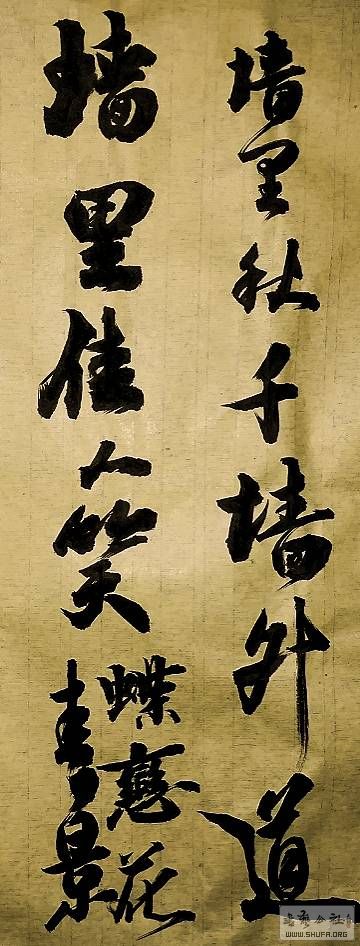 墙里秋千墙外道
墙里佳人笑
蝶恋花
春景
书艺公社
WWW.SHUFA.ORG